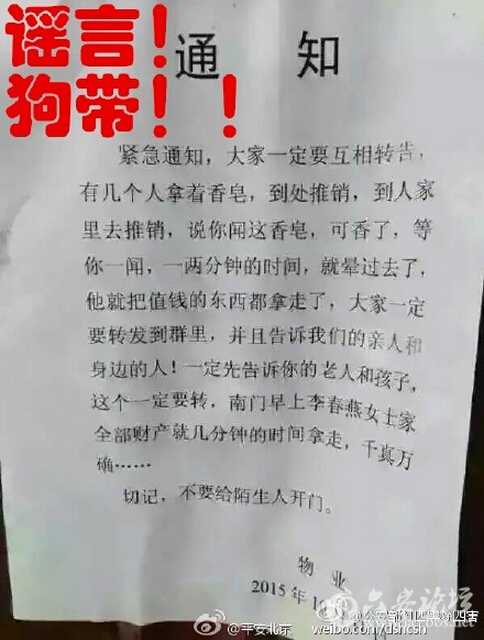 谣言！
狗带！！
通 知
紧急通知，大家一定要互相转告，
有几个人拿着香皂，到处推销，到人家
里去推销，说你闻这香皂，可香了，等
你一闻，一两分钟的时间，就晕过去了，
他就把值钱的东西都拿走了，大家一定
要转发到群里，并且告诉我们的亲人和
身边的人！一定先告诉你的老人和孩子，
这个一定要转，南门早上李春燕女士家
全部财产就几分钟的时间拿走，千真万
确……
切记，不要给陌生人开门。
物业
2015年1
@平安北京
weibo.com/dsncsh